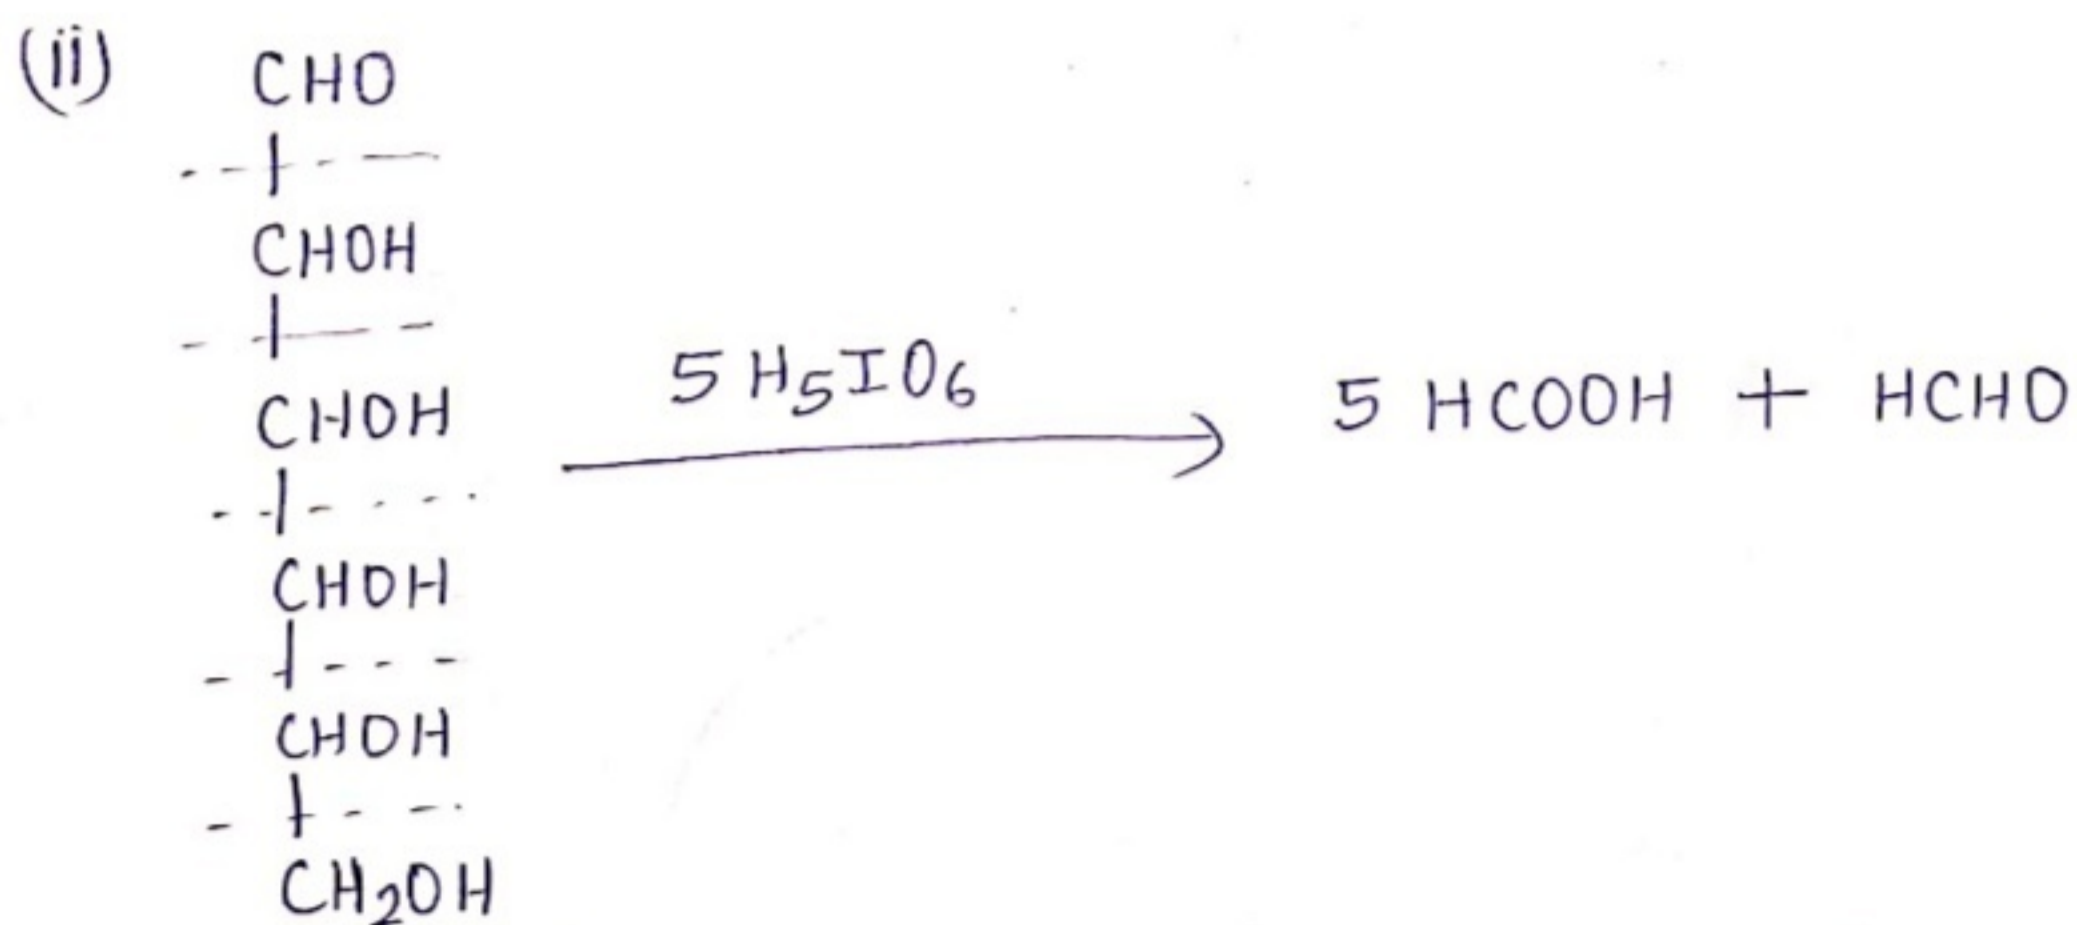 (ii) CHO
CHOH
CHOH
CHOH
CHOH
CH₂OH
5 H₅IO₆
5 HCOOH + HCHO